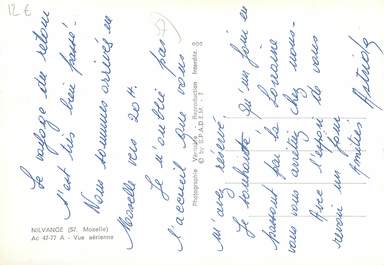 12 €
Le voyage du retour
s'est très bien passé.
Nous sommes arrivés en
Moselle vers 20 H.
Je n'oublie pas
l'accueil que vous
m'avez réservé.
Je souhaite qu'un jour en
passant par la Lorraine
vous vous arrêtiez chez nous.
Avec l'espoir de vous
revoir un jour
Amitiés
NILVANGE (57. Moselle)
Ac 47-77 A - Vue aérienne
Photographie Véritable - Reproduction Interdite
© by S.P.A.D.E.M. -